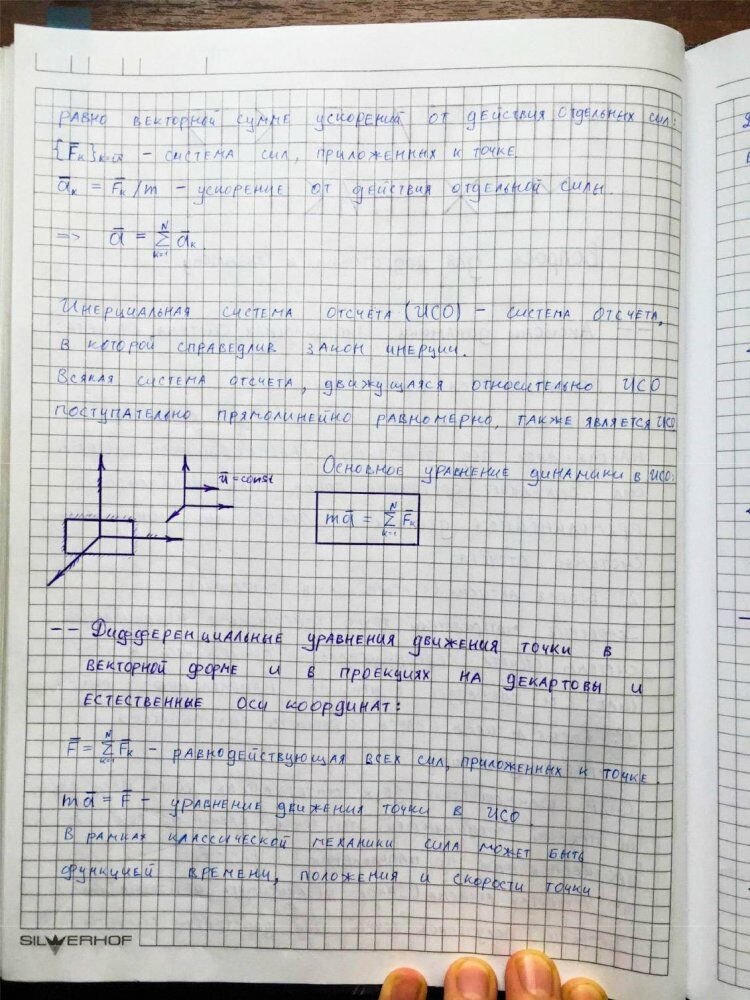 равно векторной сумме ускорений от действия отдельных сил:
{F̄ₖ}ₖ₌ – система сил, приложенных к точке
āₖ = F̄ₖ/m – ускорение от действия отдельной силы.
=> ā = Σₖ₌₁ᴺ āₖ.
Инерциальная система отсчета (ИСО) – система отсчета,
в которой справедлив закон инерции.
Всякая система отсчета, движущаяся относительно ИСО
поступательно прямолинейно равномерно, также является ИСО
ū = const
Основное уравнение динамики в ИСО:
mā = Σₖ₌₁ᴺ F̄ₖ
-- Дифференциальные уравнения движения точки в
векторной форме и в проекциях на декартовы и
естественные оси координат:
F̄ = Σₖ₌₁ᴺ F̄ₖ – равнодействующая всех сил, приложенных к точке.
mā = F̄ – уравнение движения точки в ИСО.
В рамках классической механики сила может быть
функцией времени, положения и скорости точки.
SILWERHOF